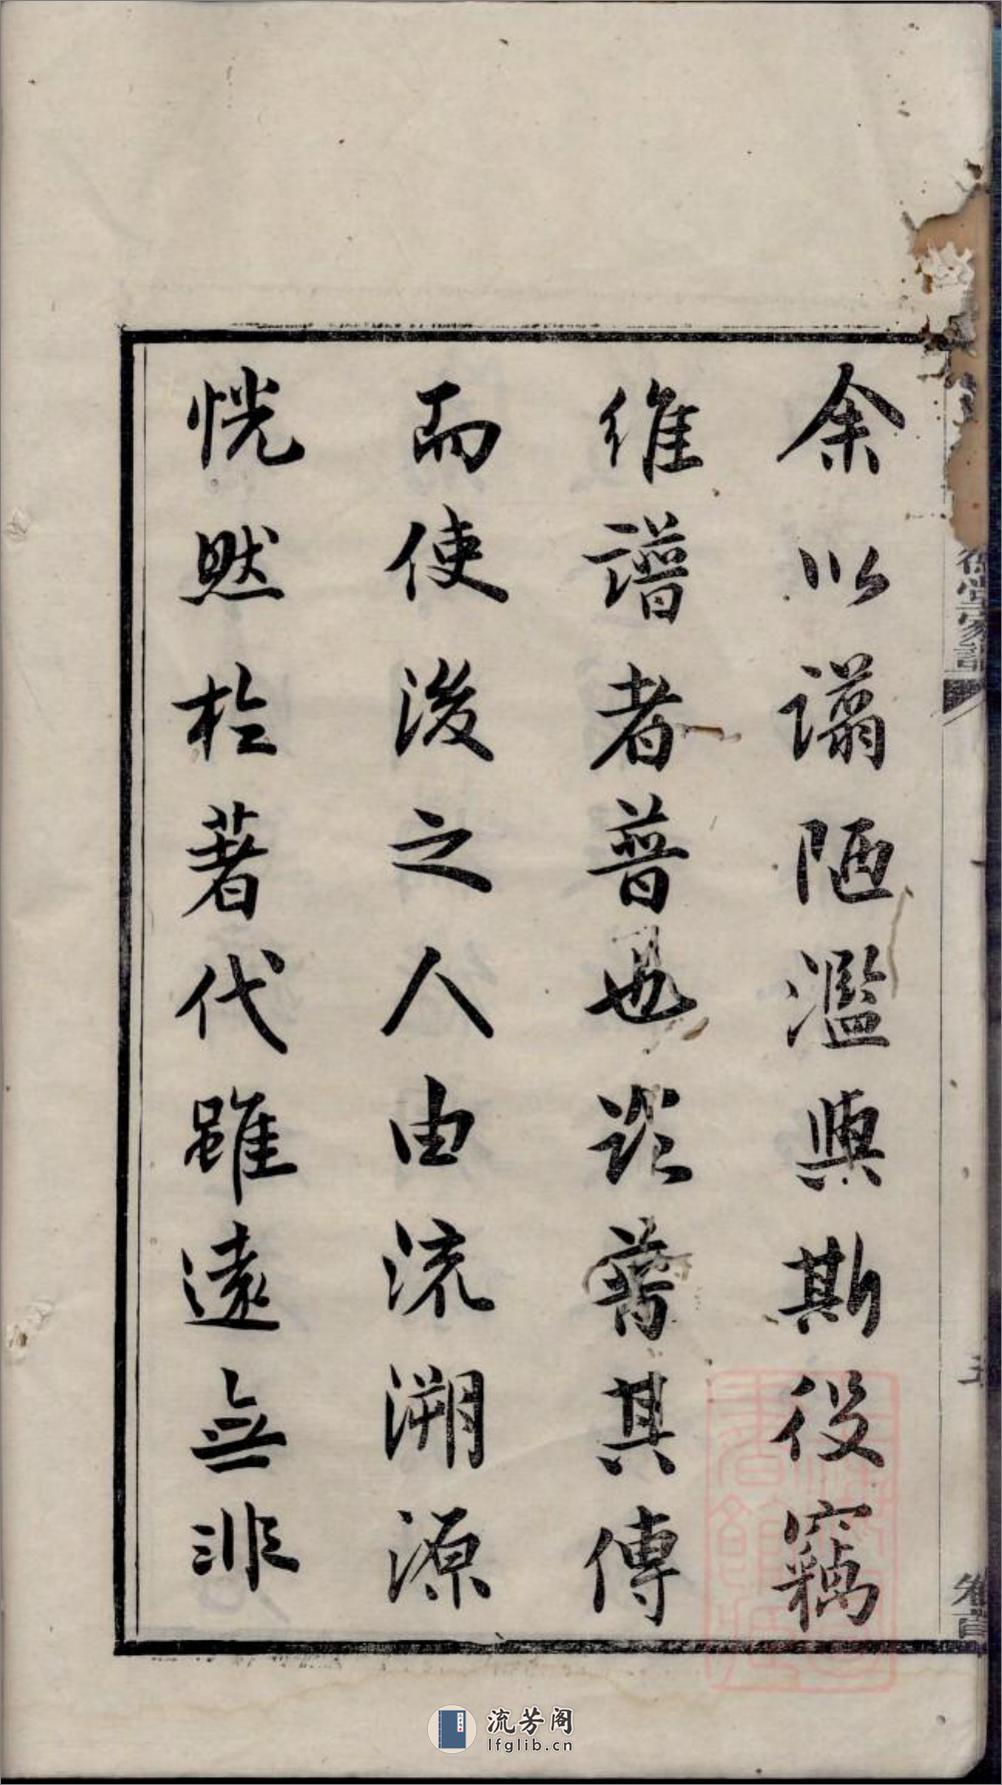 余以譾陋濫與斯役竊
維譜者普也欲普其傳
而使後之人由流溯源
恍然於著代雖遠無非
堂家譜
五
卷首
流芳阁
lfglib.cn